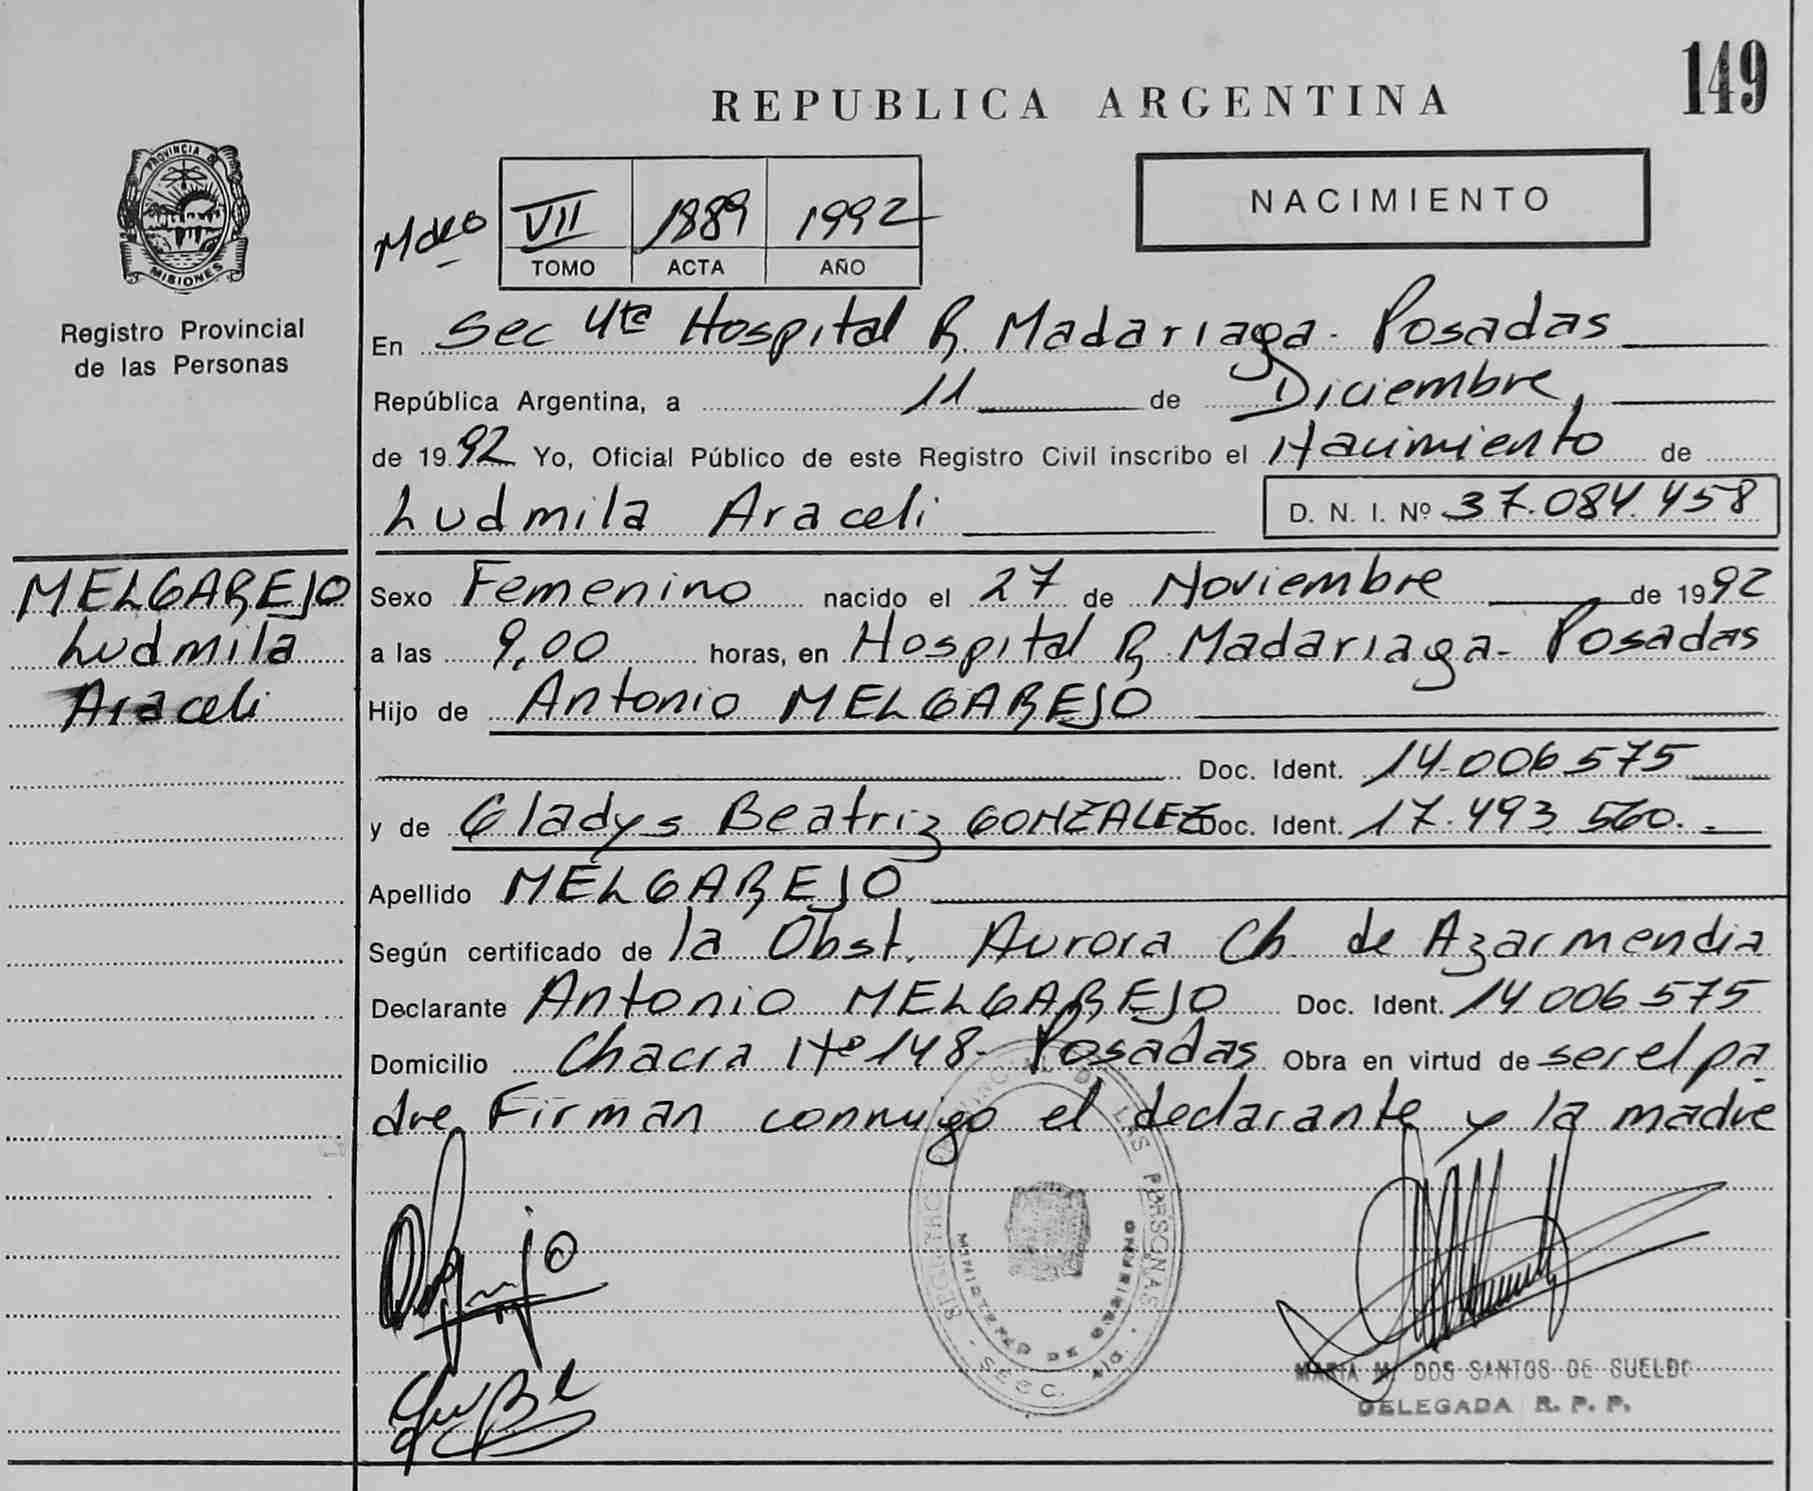 149
REPUBLICA ARGENTINA
NACIMIENTO
PROVINCIA DE
MISIONES
Registro Provincial
de las Personas
VII 1889 1992
TOMO ACTA AÑO
En Sec 4ta Hospital R. Madariaga - Posadas
República Argentina, a 11 de Diciembre,
de 1992 Yo, Oficial Público de este Registro Civil inscribo el Nacimiento de
Ludmila Araceli D. N. I. Nº 37.084.458
MELGAREJO
Ludmila
Araceli
Sexo Femenino nacido el 27 de Noviembre de 1992
a las 9,00 horas, en Hospital R. Madariaga - Posadas
Hijo de Antonio MELGAREJO
Doc. Ident. 14.006.575
y de Gladys Beatriz GONZALEZ Doc. Ident. 17.493.560.-
Apellido MELGAREJO
Según certificado de la Obst. Aurora Ch. de Azarmendia
Declarante Antonio MELGAREJO Doc. Ident. 14.006.575
Domicilio Chacra Nº 148 - Posadas Obra en virtud de ser el pa
dre Firman conmigo el declarante y la madre
REGISTRO PROVINCIAL DE LAS PERSONAS
MINISTERIO DE GOBIERNO
MARIA M. DOS SANTOS DE SUELDO
DELEGADA R. P. P.